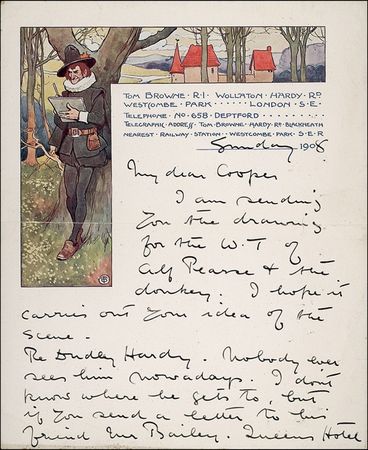 TOM BROWNE · R·I · WOLLATON · HARDY · RD
WESTCOMBE · PARK · · · · · · LONDON · S·E·
TELEPHONE · NO · 658 · DEPTFORD · · · · ·
TELEGRAPHIC · ADDRESS · TOM · BROWNE · HARDY · RD · BLACKHEATH
NEAREST · RAILWAY · STATION · WESTCOMBE · PARK · S·E·R
Sunday 1908
My dear Cooper
I am sending
you the drawing
for the W.T of
Alf Pearse & the
donkey. I hope it
carries out your idea of the
scene.
Re Dudley Hardy. Nobody ever
sees him nowadays. I don't
know where he gets to, but
if you send a letter to his
friend Mr Bailey. Queens Hotel
TB